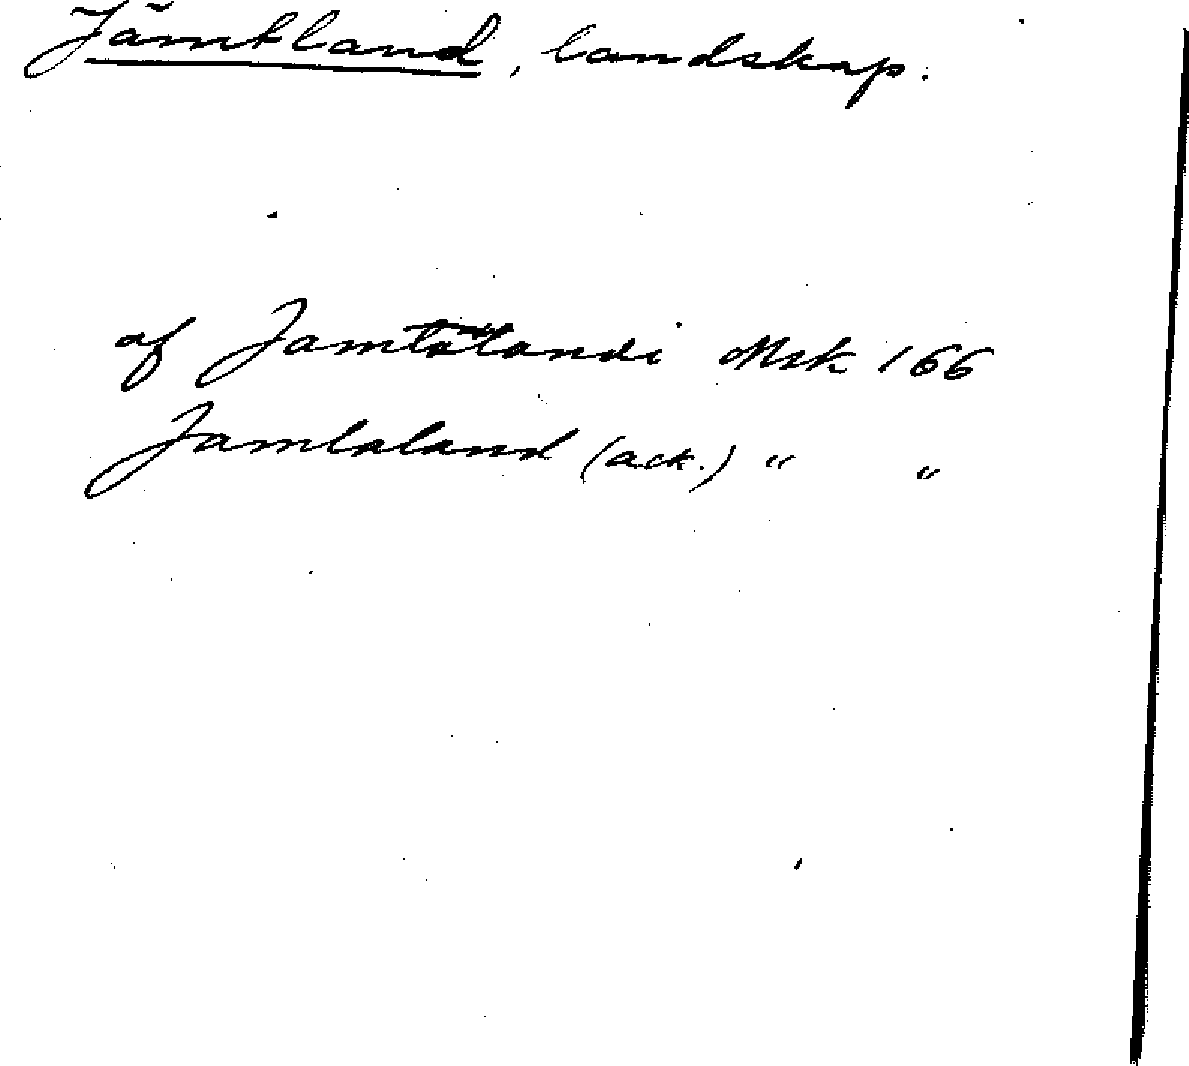 Jämtland, landskap.
af Jamtalandi Msk 166
Jamtaland (ack.) " "